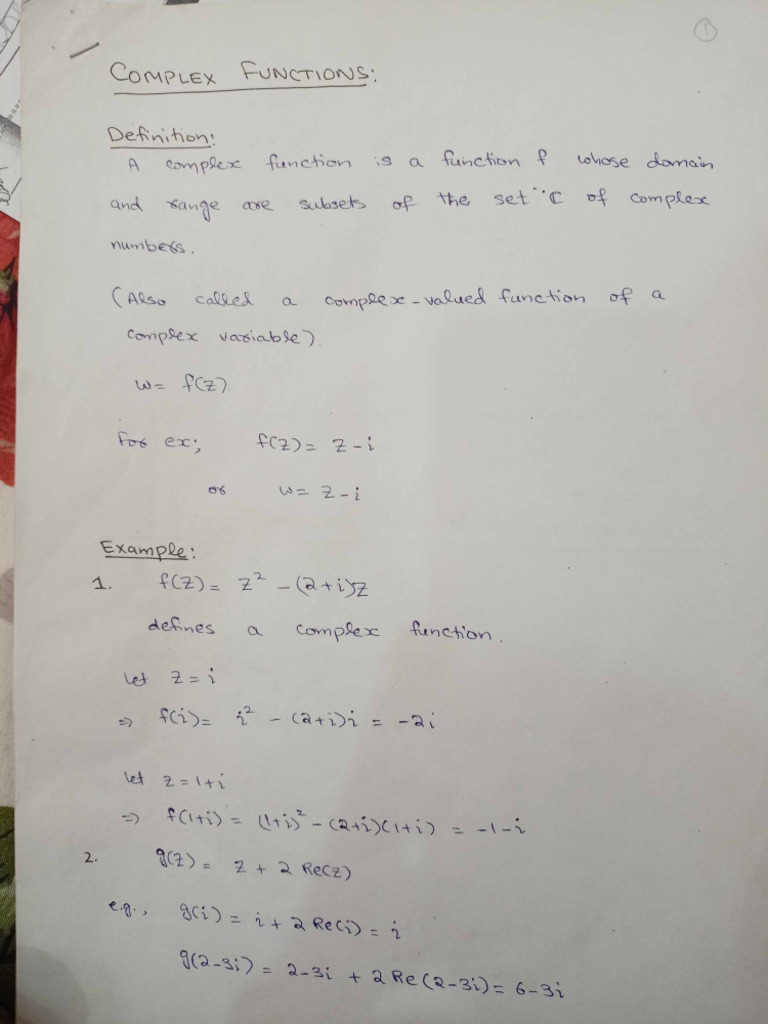 ①
COMPLEX FUNCTIONS:
Definition:
A complex function is a function f whose domain
and range are subsets of the set ℂ of complex
numbers.
(Also called a complex-valued function of a
complex variable).
w = f(z)
For ex; f(z) = z - i
or w = z - i
Example:
1. f(z) = z² - (2+i)z
defines a complex function.
let z = i
⇒ f(i) = i² - (2+i)i = -2i
let z = 1+i
⇒ f(1+i) = (1+i)² - (2+i)(1+i) = -1-i
2. g(z) = z + 2 Re(z)
e.g., g(i) = i + 2 Re(i) = i
g(2-3i) = 2-3i + 2 Re(2-3i) = 6-3i